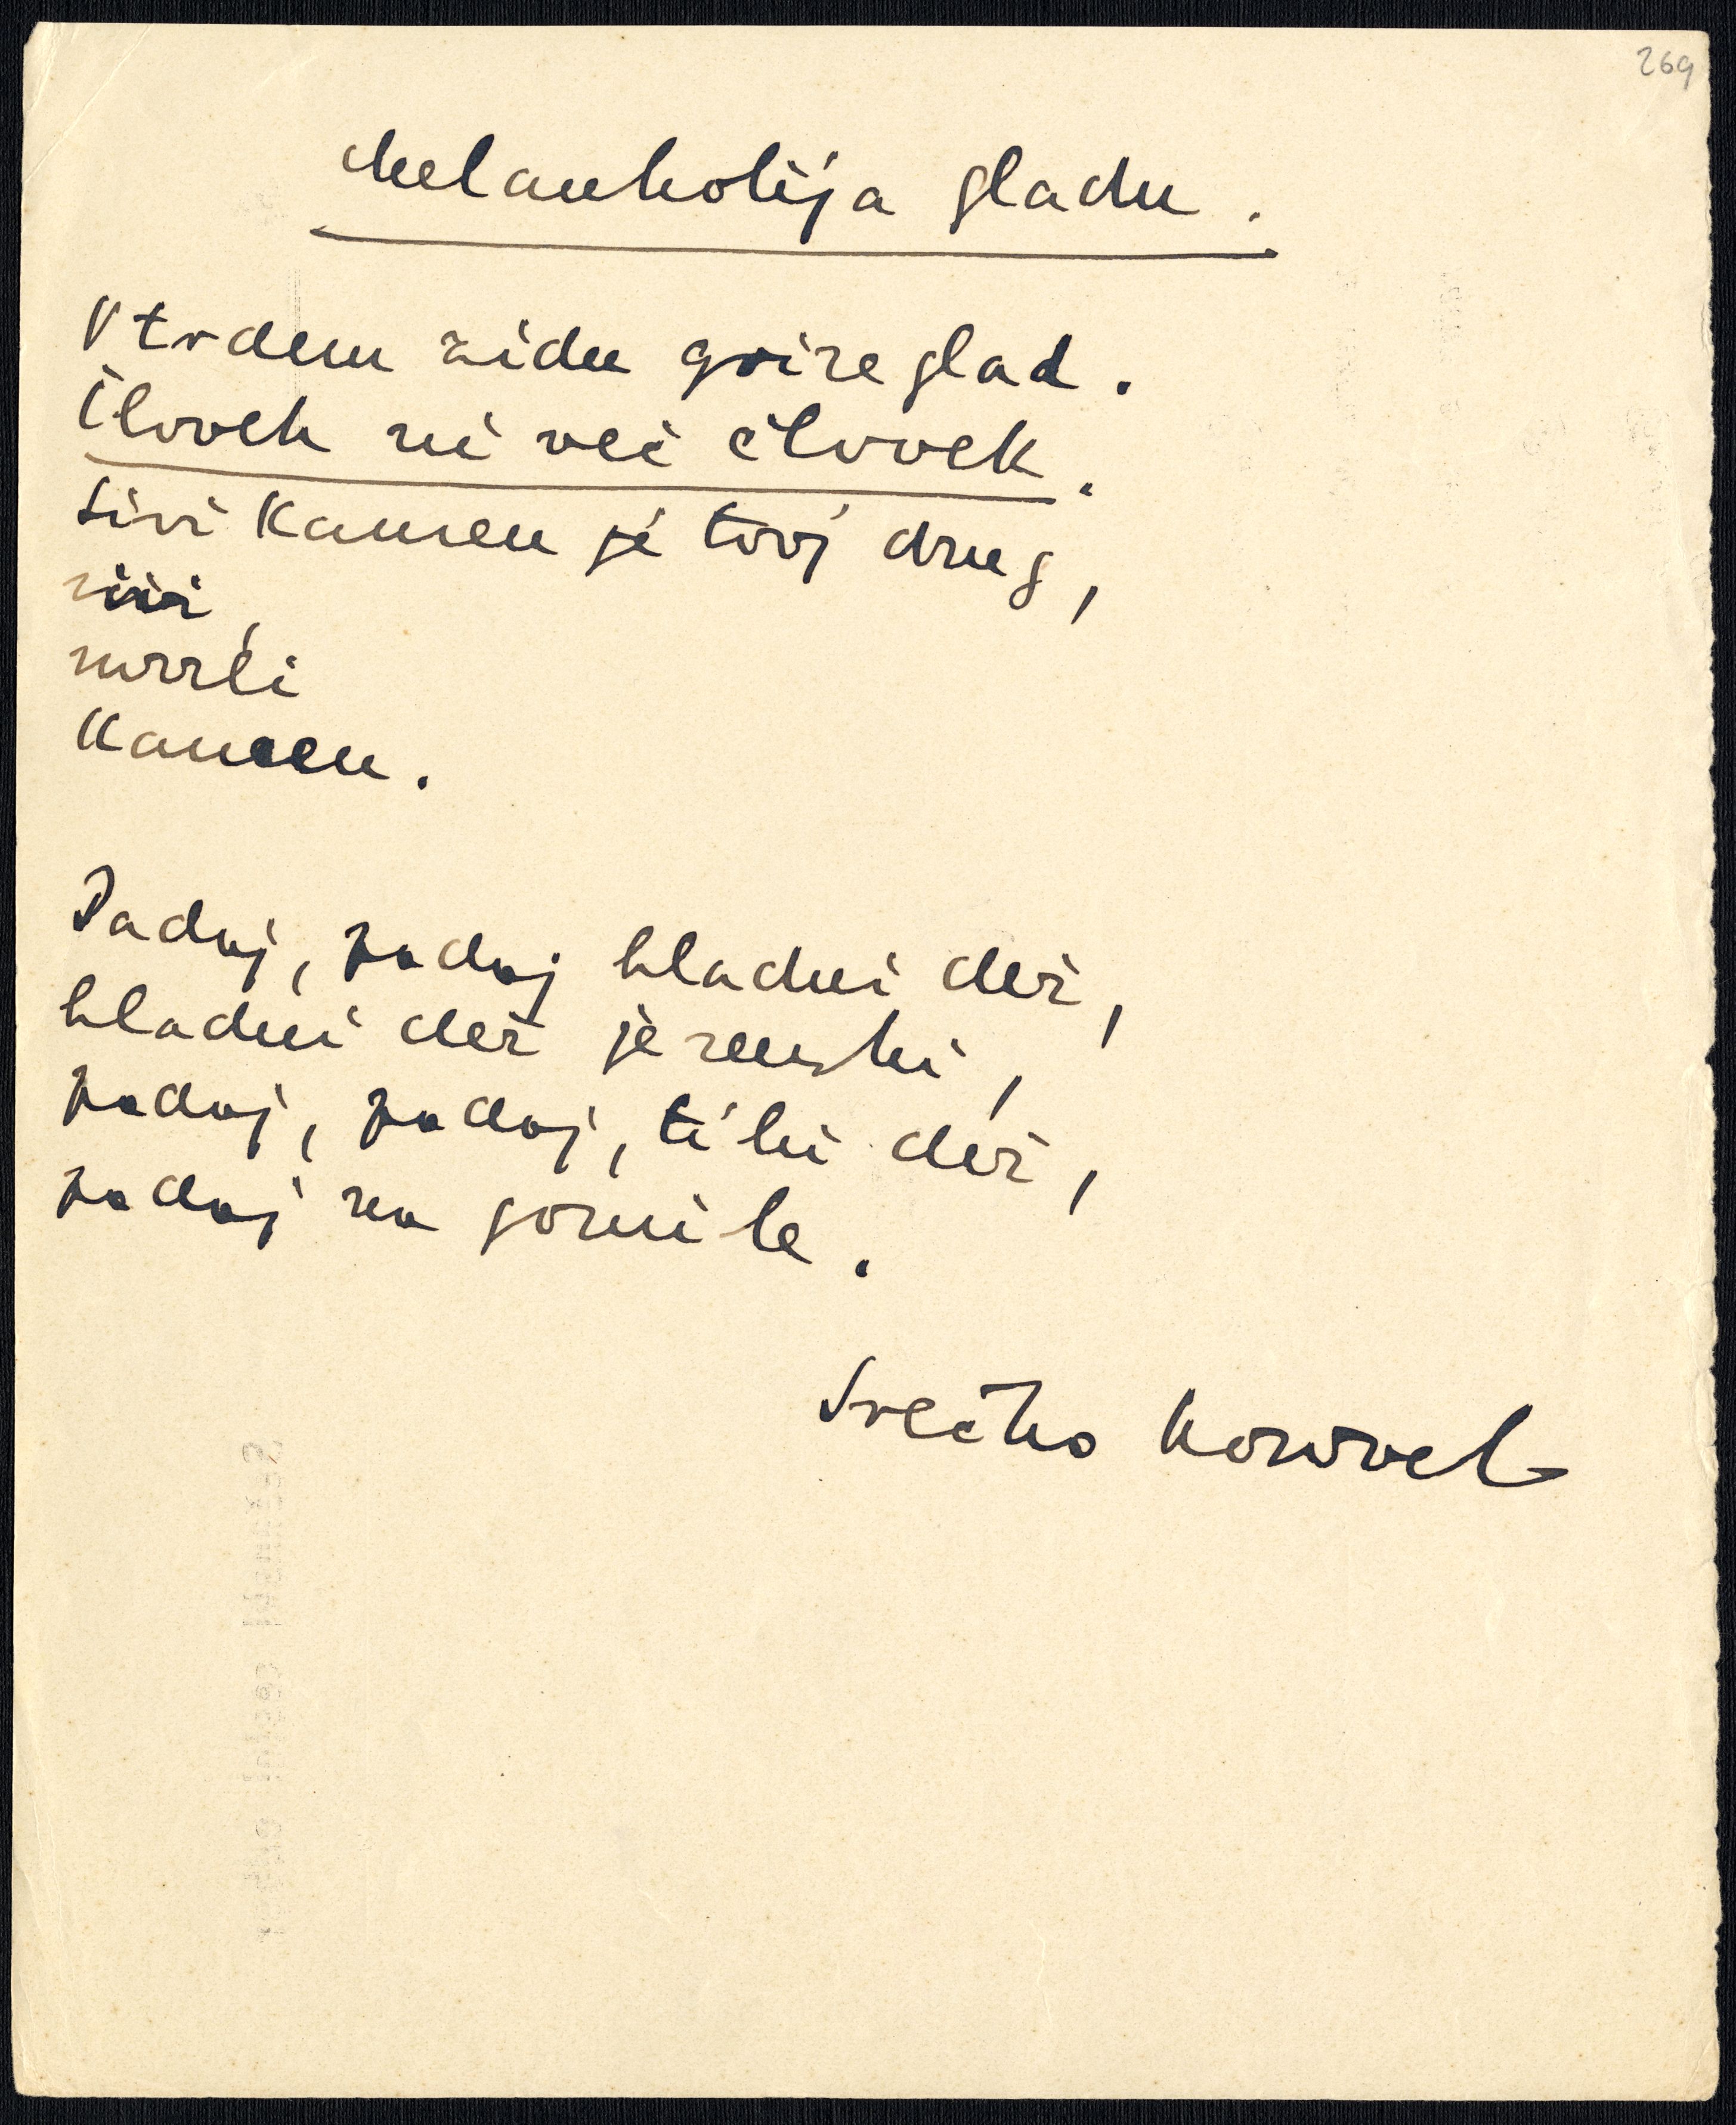 269
Melanholija gladu.
V trdem zidu grize glad.
Človek ni več človek.
Sivi kamen je tvoj drug,
sivi,
mrzli
kamen.
Padaj, padaj hladni dež,
hladni dež jesenski,
padaj, padaj, tihi dež,
padaj na gomile.
Srečko Kosovel